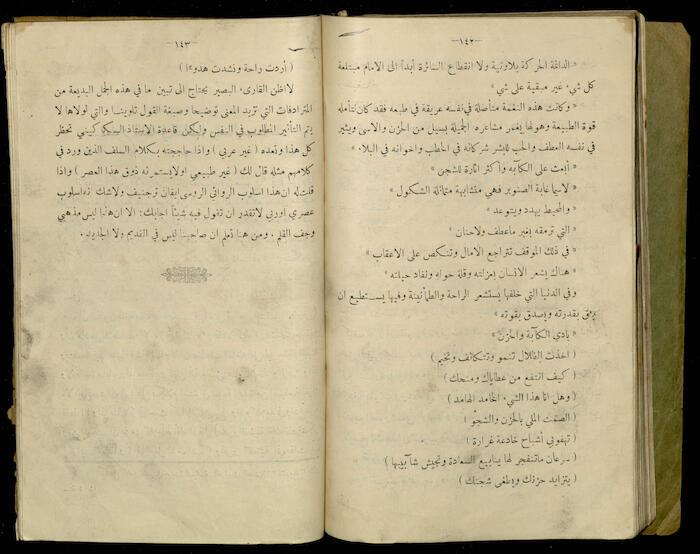 -١٤٢-
« الدائمة الحركة بلاونية ولا انقطاع السائرة أبداً الى الامام مبتلعة
كل شيء غير مبقية على شيء »
« وكانت هذه النغمة متأصلة في نفسه عريقة في طبعه فقد كان لتأمله
قوة الطبيعة وهولها يغمر مشاعره الجميلة بسيل من الحزن والاسى ويثير
في نفسه العطف والحب للبشر شركائه في الخطب واخوانه في البلاء »
« أبعث على الكآبة واكثر اثارة للشجن »
« لاسيما غابة الصنوبر فهي متشابهة متماثلة الشكول »
« والمحيط يهدد ويتوعد »
« التي ترمقه بغير ماعطف ولاحنان »
« في ذلك الموقف تتراجع الامال وتنكص على الاعقاب »
« هناك يشعر الانسان بعزلته وقلة حوله ونفاد حيلته »
وفي الدنيا التي خلفها يستشعر الراحة والطمأنينة وفيها يستطيع ان
يثق بقدرته ويصدق بقوته »
« بادي الكآبة والحزن »
( اخذت الظلال تنمو وتتكاثف وتخيم )
( كيف انتفع من عطاياك ومنحك )
( وهل انا هذا الشيء الخامد الهامد )
( الصمت الملي بالحزن والشجو )
( تهفو بي أشباح خادعة غرارة )
( سرعان ماتنفجر لها ينابيع السعادة وتجيش شآبيبها )
( يتزايد حزنك ويطغى شجنك )
-١٤٣-
( أردت راحة ونشدت هدوءا )
لا اظن القارىء البصير يحتاج الى تبيين ما في هذه الجمل البديعة من
المترادفات التي تزيد المعنى توضيحا وصبغة القول تلوينا والتي لولاها لا
يتم التأثير المطلوب في النفس ولكن قاعدة الاستاذ السكاكيني تحظر
كل هذا وتعده ( غير عربي ) واذا حاججته بكلام السلف الذين ورد في
كلامهم مثله قال لك ( غير طبيعي ولايستمرئه ذوق هذا العصر ) واذا
قلت له ان هذا اسلوب الروائي الروسي ايفان ترجنيف ولاشك انه اسلوب
عصري اوربي لاتقدر ان تقول فيه شيئاً اجابك: الا ان هذا ليس مذهبي
وجف القلم . ومن هنا تعلم ان صاحبنا ليس في القديم ولا الجديد .